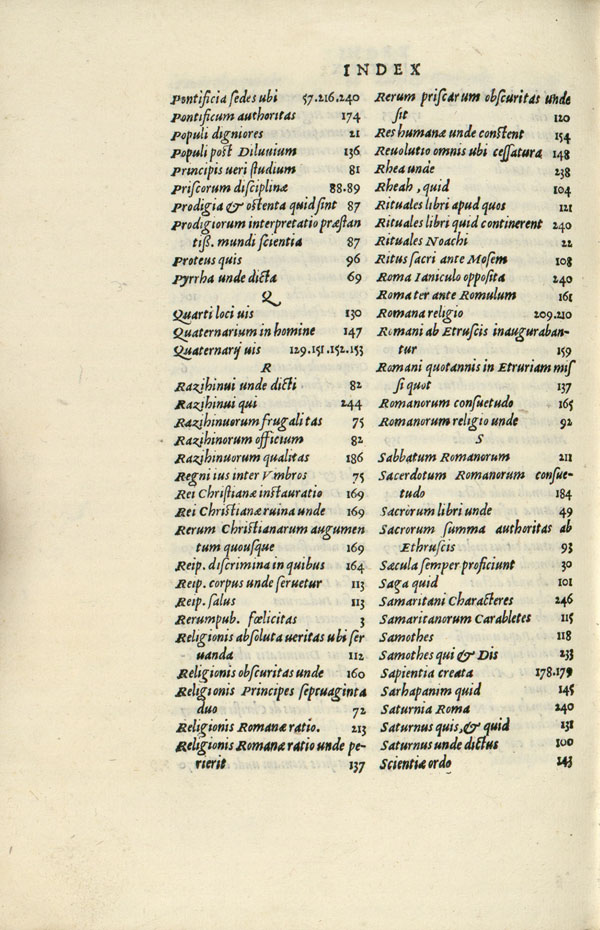 INDEX
Pontificia ſedes ubi 57.216.240
Pontificum authoritas 174
Populi digniores 21
Populi post Diluuium 136
Principis ueri ſtudium 81
Priſcorum diſciplinæ 88.89
Prodigia & oſtenta quid ſint 87
Prodigiorum interpretatio præſtan
tiß. mundi ſcientia 87
Proteus quis 96
Pyrrha unde dicta 69
Q
Quarti loci uis 130
Quaternarium in homine 147
Quaternarij uis 129.151.152.153
R
Razihinui unde dicti 82
Razihinui qui 244
Razihinuorum frugalitas 75
Razihinorum officium 82
Razihinuorum qualitas 186
Regni ius inter Vmbros 75
Rei Chriſtianæ inſtauratio 169
Rei Chriſtianæ ruina unde 169
Rerum Chriſtianarum augumen
tum quouſque 169
Reip. diſcrimina in quibus 164
Reip. corpus unde ſeruetur 113
Reip. ſalus 113
Rerumpub. fœlicitas 3
Religionis abſoluta ueritas ubi ſer
uanda 112
Religionis obſcuritas unde 160
Religionis Principes ſeptuaginta
duo 72
Religionis Romanæ ratio. 213
Religionis Romanæ ratio unde pe-
rierit 137
Rerum priſcarum obſcuritas unde
ſit 120
Res humanæ unde conſtent 154
Reuolutio omnis ubi ceſſatura 148
Rhea unde 238
Rheah, quid 104
Rituales libri apud quos 121
Rituales libri quid continerent 240
Rituales Noachi 22
Ritus ſacri ante Moſem 108
Roma Ianiculo oppoſita 240
Roma ter ante Romulum 161
Romana religio 209.210
Romani ab Etruſcis inauguraban-
tur 159
Romani quotannis in Etruriam miſ
ſi quot 137
Romanorum conſuetudo 165
Romanorum religio unde 92
S
Sabbatum Romanorum 211
Sacerdotum Romanorum conſue-
tudo 184
Sacrorum libri unde 49
Sacrorum ſumma authoritas ab
Ethruſcis 93
Sæcula ſemper proficiunt 30
Saga quid 101
Samaritani Characteres 246
Samaritanorum Carabletes 115
Samothes 118
Samothes qui & Dis 233
Sapientia creata 178.179
Sarhapanim quid 145
Saturnia Roma 240
Saturnus quis, & quid 131
Saturnus unde dictus 100
Scientiæ ordo 143